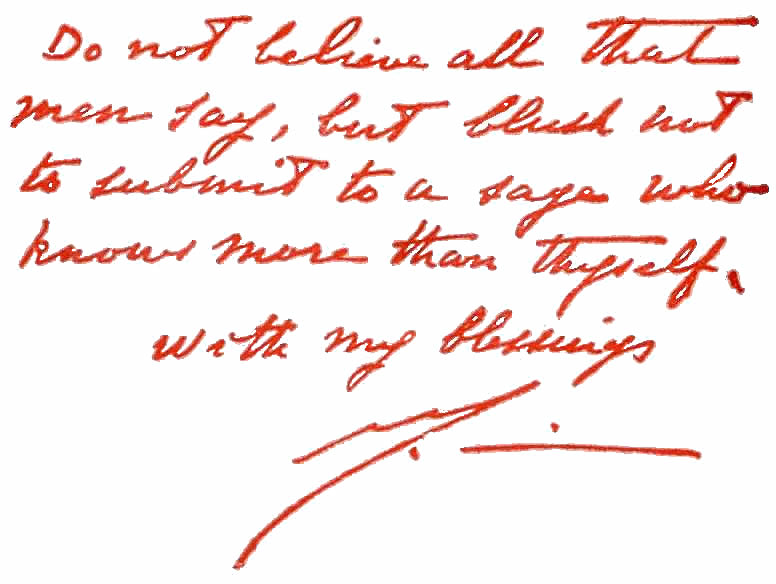 Do not believe all that
men say, but blush not
to submit to a sage who
knows more than thyself.
With my blessings